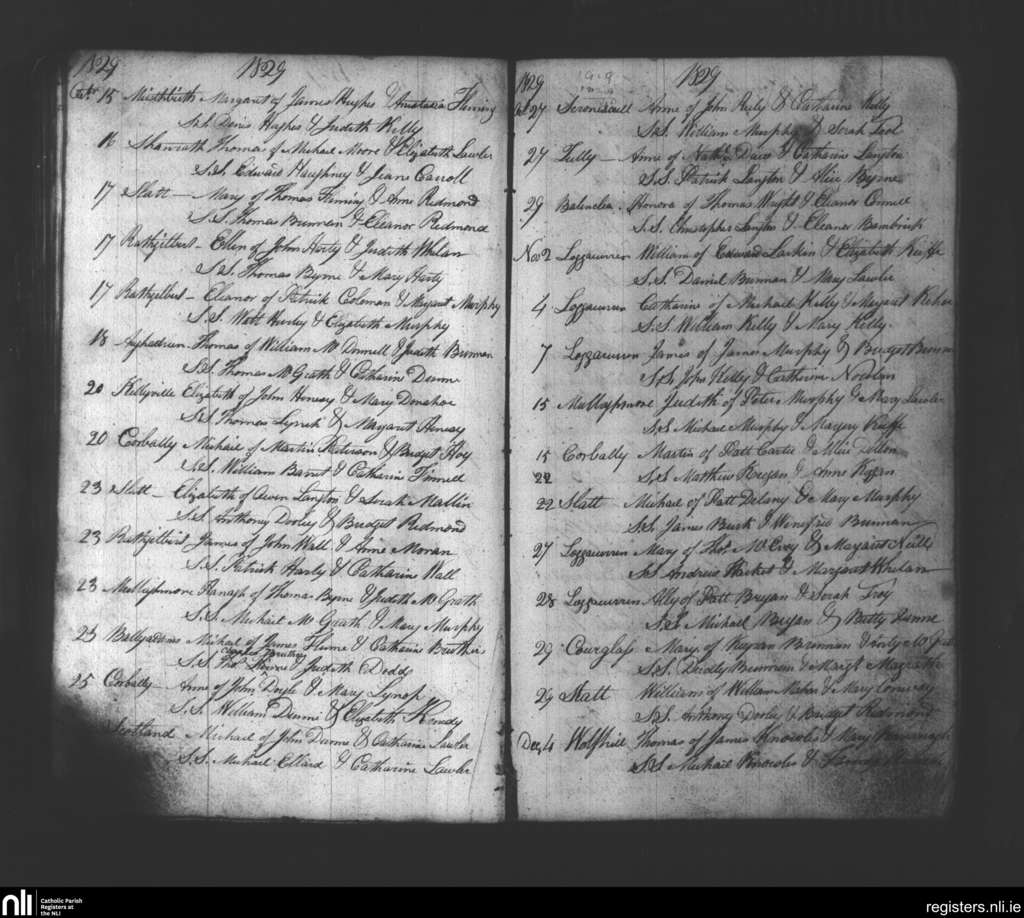 1829 1829
15 Margaret of James Hughes & Anastasia Fleming
S.S. Denis Hughes & Judith Kelly
16 Shanrath Thomas of Michael Moore & Elizabeth Lawler
S.S. Edward Haughney & Jean Carroll
17 Slatt - Mary of Thomas Fleming & Anne Redmond
S.S. Thomas Brennan & Eleanor Redmond
17 Rathgilbert - Ellen of John Harty & Judith Whelan
S.S. Thomas Byrne & Mary Harty
17 Rathgilbert - Eleanor of Patrick Coleman & Margaret Murphy
S.S. Watt Hurley & Elizabeth Murphy
18 Aughadreen Thomas of William McDonnell & Judith Brennan
S.S. Thomas McGrath & Catharine Dunn
20 Kellyville Elizabeth of John Henesy & Mary Donahoe
S.S. Thomas Lynch & Margaret Henesy
20 Corbally Michael of Martin Peterson & Budget Hoy
S.S. William Barret & Catharine Finnell
23 Slatt - Elizabeth of Owen Langton & Sarah Mallin
S.S. Anthony Dooley & Bridget Redmond
23 Rathgilbert James of John Wall & Anne Moran
S.S. Patrick Harty & Catharine Wall
23 Mullaghmore of Thomas Byrne & Judith McGrath
S.S. Michael McGrath & Mary Murphy
25 Ballyadams Michael of James Flume & Catharine Brothers
S.S. Thos & Judith Dodd
25 Corbally - Anne of John Doyle & Mary Lynch
S.S. William Dunne & Elizabeth Kennedy
Scotland Michael of John Dunne & Catharine Lawler
S.S. Michael Ellard & Catharine Lawler
1829 1829
Oct 27 Anne of John Reily & Catharine Kelly
S.S. William Murphy & Sarah Tool
27 Tully - Anne of Nath & Catharine Langton
S.S. Patrick Langton & Alice Byrne
29 Balinclea Honora of Thomas Wright & Eleanor Connell
S.S. Christopher Langton & Eleanor Bambrick
Nov 2 Loggacurren William of Edward Larkin & Elizabeth Keiffe
S.S. Daniel Brennan & Mary Lawler
4 Loggacurren Catharine of Michael Kelly & Margaret
S.S. William Kelly & Mary Kelly
7 Loggacurren James of James Murphy & Bridget Brennan
S.S. John Kelly & Catharine Nowlan
15 Mullaghmore Judith of Peter Murphy & Mary Lawler
S.S. Michael Murphy & Margery Keiffe
15 Corbally Martin of Patt Carter & Allice Dillon
22 S.S. Matthew Regan & Anne
22 Slatt Michael of Patt Delany & Mary Murphy
S.S. James Burk & Winefred Brennan
27 Loggacurren Mary of Thos McEvoy & Margaret Neill
S.S. Andrew Hacket & Margaret Whelan
28 Loggacurren Ally of Patt Bryan & Sarah Troy
S.S. Michael Bryan & Betty Dunne
29 Courglass Mary of Keyran Brennan &
S.S. Dudly Brennan & Margt Magrath
29 Slatt William of William Maher & Mary Conway
S.S. Anthony Dooley & Bridget Redmond
Dec 4 Wolfhill Thomas of James Knowles & Mary Kavanagh
S.S. Michael Knowles &
nli Catholic Parish
Registers at
the NLI
registers.nli.ie